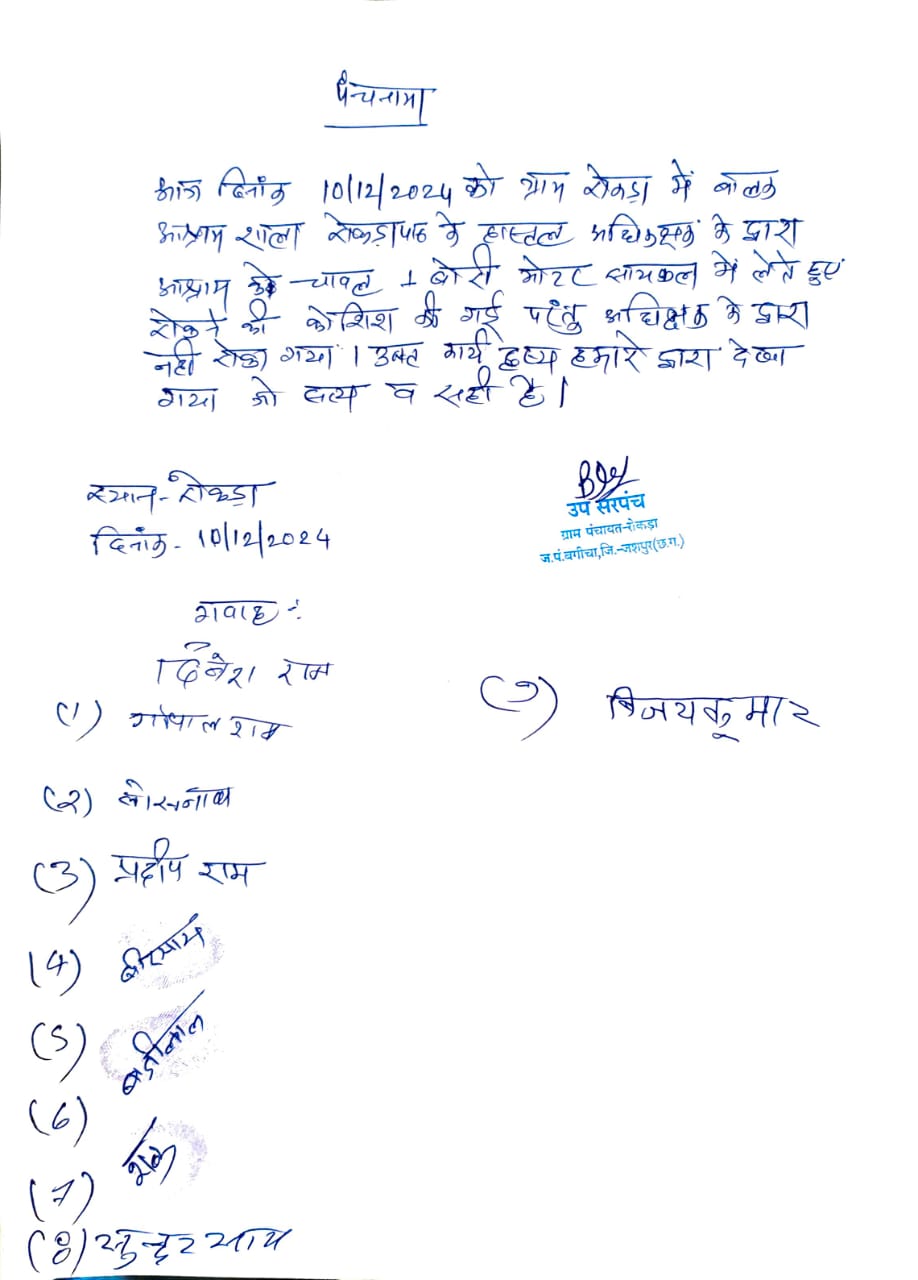 पंचनामा
आज दिनांक 10/12/2024 को ग्राम रोकड़ा में बालक
आश्रम शाला रोकड़ापाठ के हास्टल अधिक्षक के द्वारा
आश्रम के चावल 1 बोरी मोटर सायकल में लेते हुए
रोकने की कोशिश की गई परंतु अधिक्षक के द्वारा
नही रोका गया। उक्त कार्य हमारे द्वारा देखा
गया जो सत्य व सही है।
स्थान - रोकड़ा
दिनांक - 10/12/2024
उप सरपंच
ग्राम पंचायत-रोकड़ा
ज.पं.बगीचा,जि.-जशपुर(छ.ग.)
गवाह :-
दिनेश राम
(1) गोपाल राम
(2)
(3) प्रदीप राम
(4)
(5)
(6)
(7)
(8) सुन्दर साय
(9) विजय कुमार